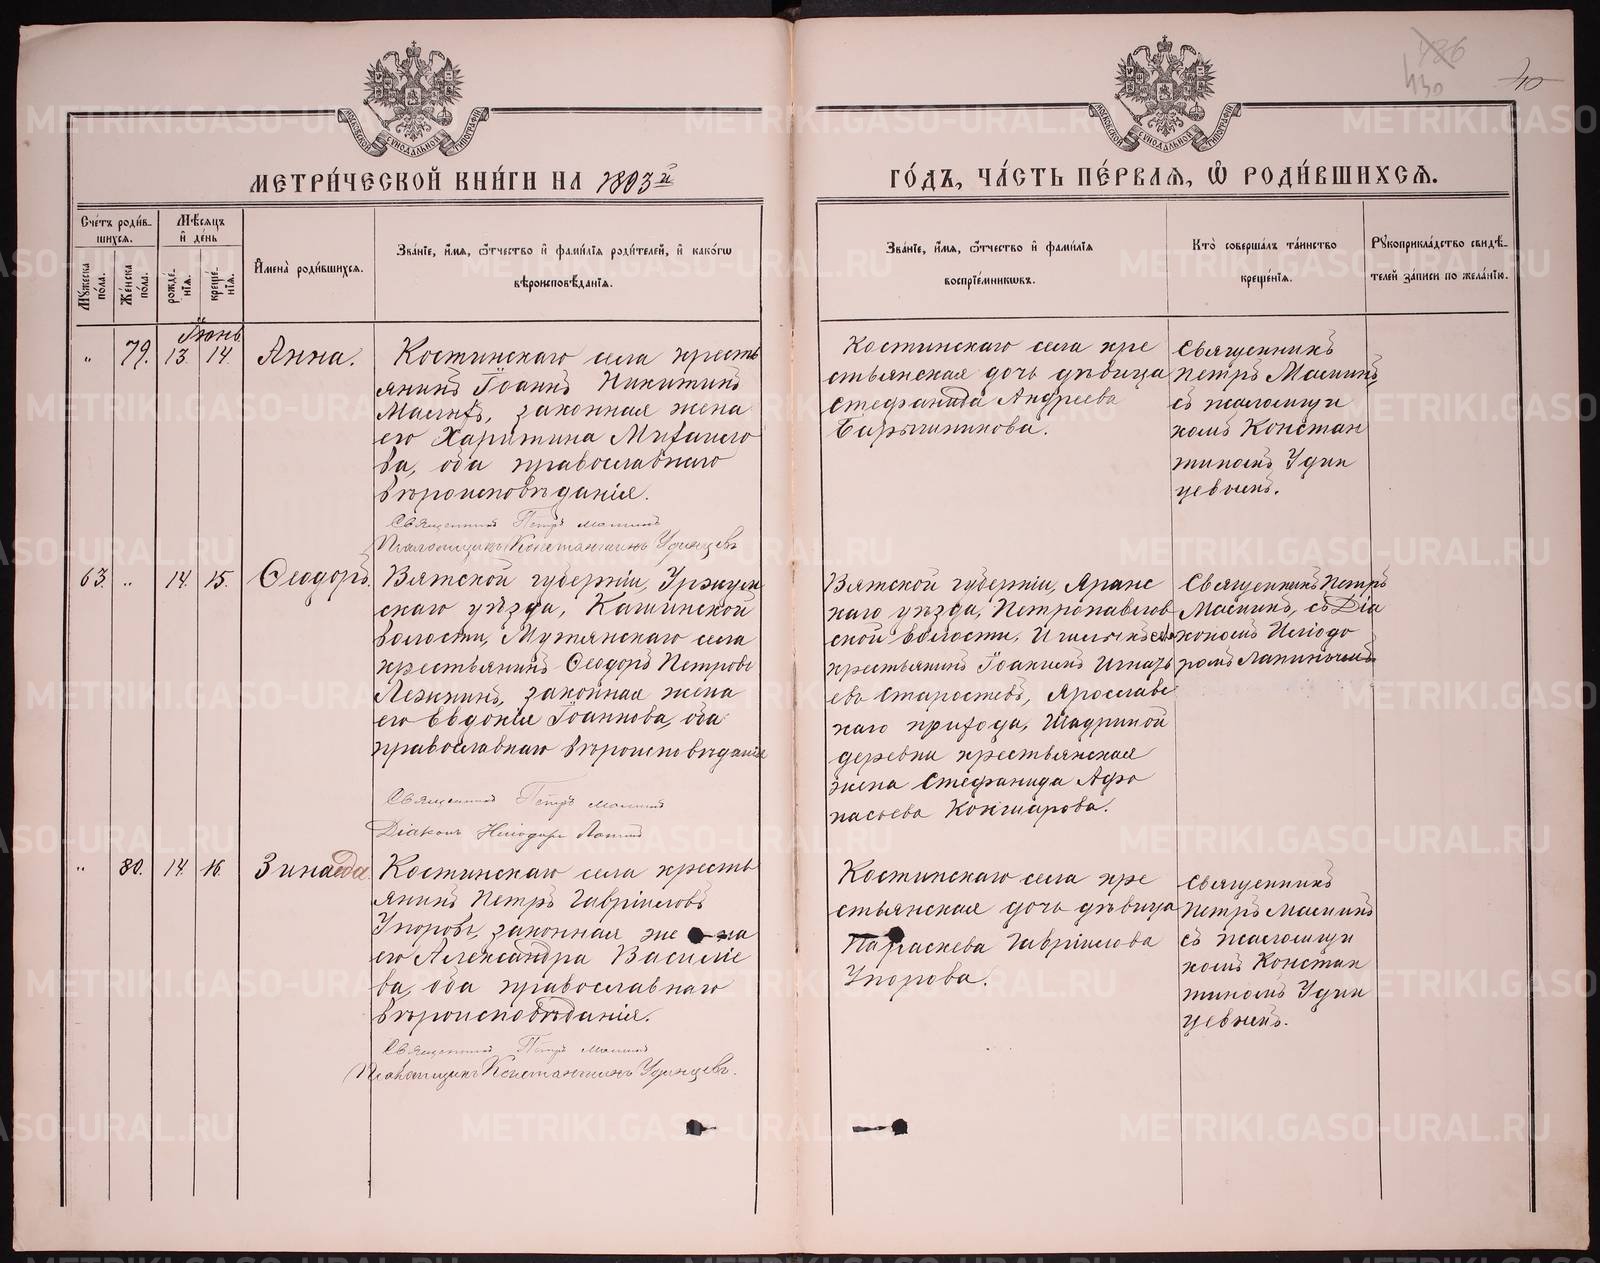 486
430
40
МОСКОВСКОЙ СѴНОДАЛЬНОЙ ТИПОГРАФІИ
МОСКОВСКОЙ СѴНОДАЛЬНОЙ ТИПОГРАФІИ
МЕТРИ́ЧЕСКОЙ КНИ́ГИ НА 1893й
ГО́ДЪ, ЧА́СТЬ ПЕ́РВАЯ, Ѽ РОДИ́ВШИХСЯ.
Сче́тъ роди́в-
шихся.
Му́жеска по́ла.
Же́нска по́ла.
Мѣ́сяцъ
и де́нь
рожде́-
нія.
креще́-
нія.
Имена̀ роди́вшихся.
Зва́ніе, и́мя, ѻ́тчество и фами́лія роди́телей, и како́гѡ
вѣроисповѣ́данія.
Зва́ніе, и́мя, ѻ́тчество и фами́лія
воспріе́мникѡвъ.
Кто̀ соверша́лъ та́инство
креще́нія.
Рукоприкла́дство свидѣ́-
телей за́писи по жела́нію.
Іюнь
„ 79. 13. 14. Анна.
Костинскаго села кресть
янинъ Іоаннъ Никитинъ
законная жена
его Харитина Михаило
ва, оба православнаго
вѣроисповѣданія.
Священникъ Петръ Маминъ
Псаломщикъ Константинъ Удинцевъ
Костинскаго села кре
стьянская дочь дѣвица
Стефанида Андреева
Священникъ
Петръ Маминъ
съ псаломщи
комъ Констан
тиномъ Удин
цевымъ.
63. „ 14. 15. Ѳеодоръ.
Вятской губерніи, Уржум
скаго уѣзда,
волости, села
крестьянинъ Ѳеодоръ Петровъ
Лежнинъ, законная жена
его Евдокія Іоаннова, оба
православнаго вѣроисповѣданія
Священникъ Петръ Маминъ
Діаконъ Иліодоръ
Вятской губерніи, Яранс
каго уѣзда, Петропавлов
ской волости,
крестьянинъ Іоакимъ Игнать
евъ Старостевъ, Ярославс
каго прихода, Шадриной
деревни крестьянская
жена Стефанида Афо
насьева Кокшарова.
Священникъ Петръ
Маминъ, съ Діа
кономъ Иліодо
ромъ
„ 80. 14. 16. Зинаида.
Костинскаго села кресть
янинъ Петръ Гавріиловъ
Упоровъ, законная жена
его Александра Василіе
ва, оба православнаго
вѣроисповѣданія.
Священникъ Петръ Маминъ
Псаломщикъ Константинъ Удинцевъ.
Костинскаго села кре
стьянская дочь дѣвица
Параскева Гавріилова
Упорова.
Священникъ
Петръ Маминъ
съ псаломщи
комъ Констан
тиномъ Удин
цевымъ.
METRIKI.GASO-URAL.RU